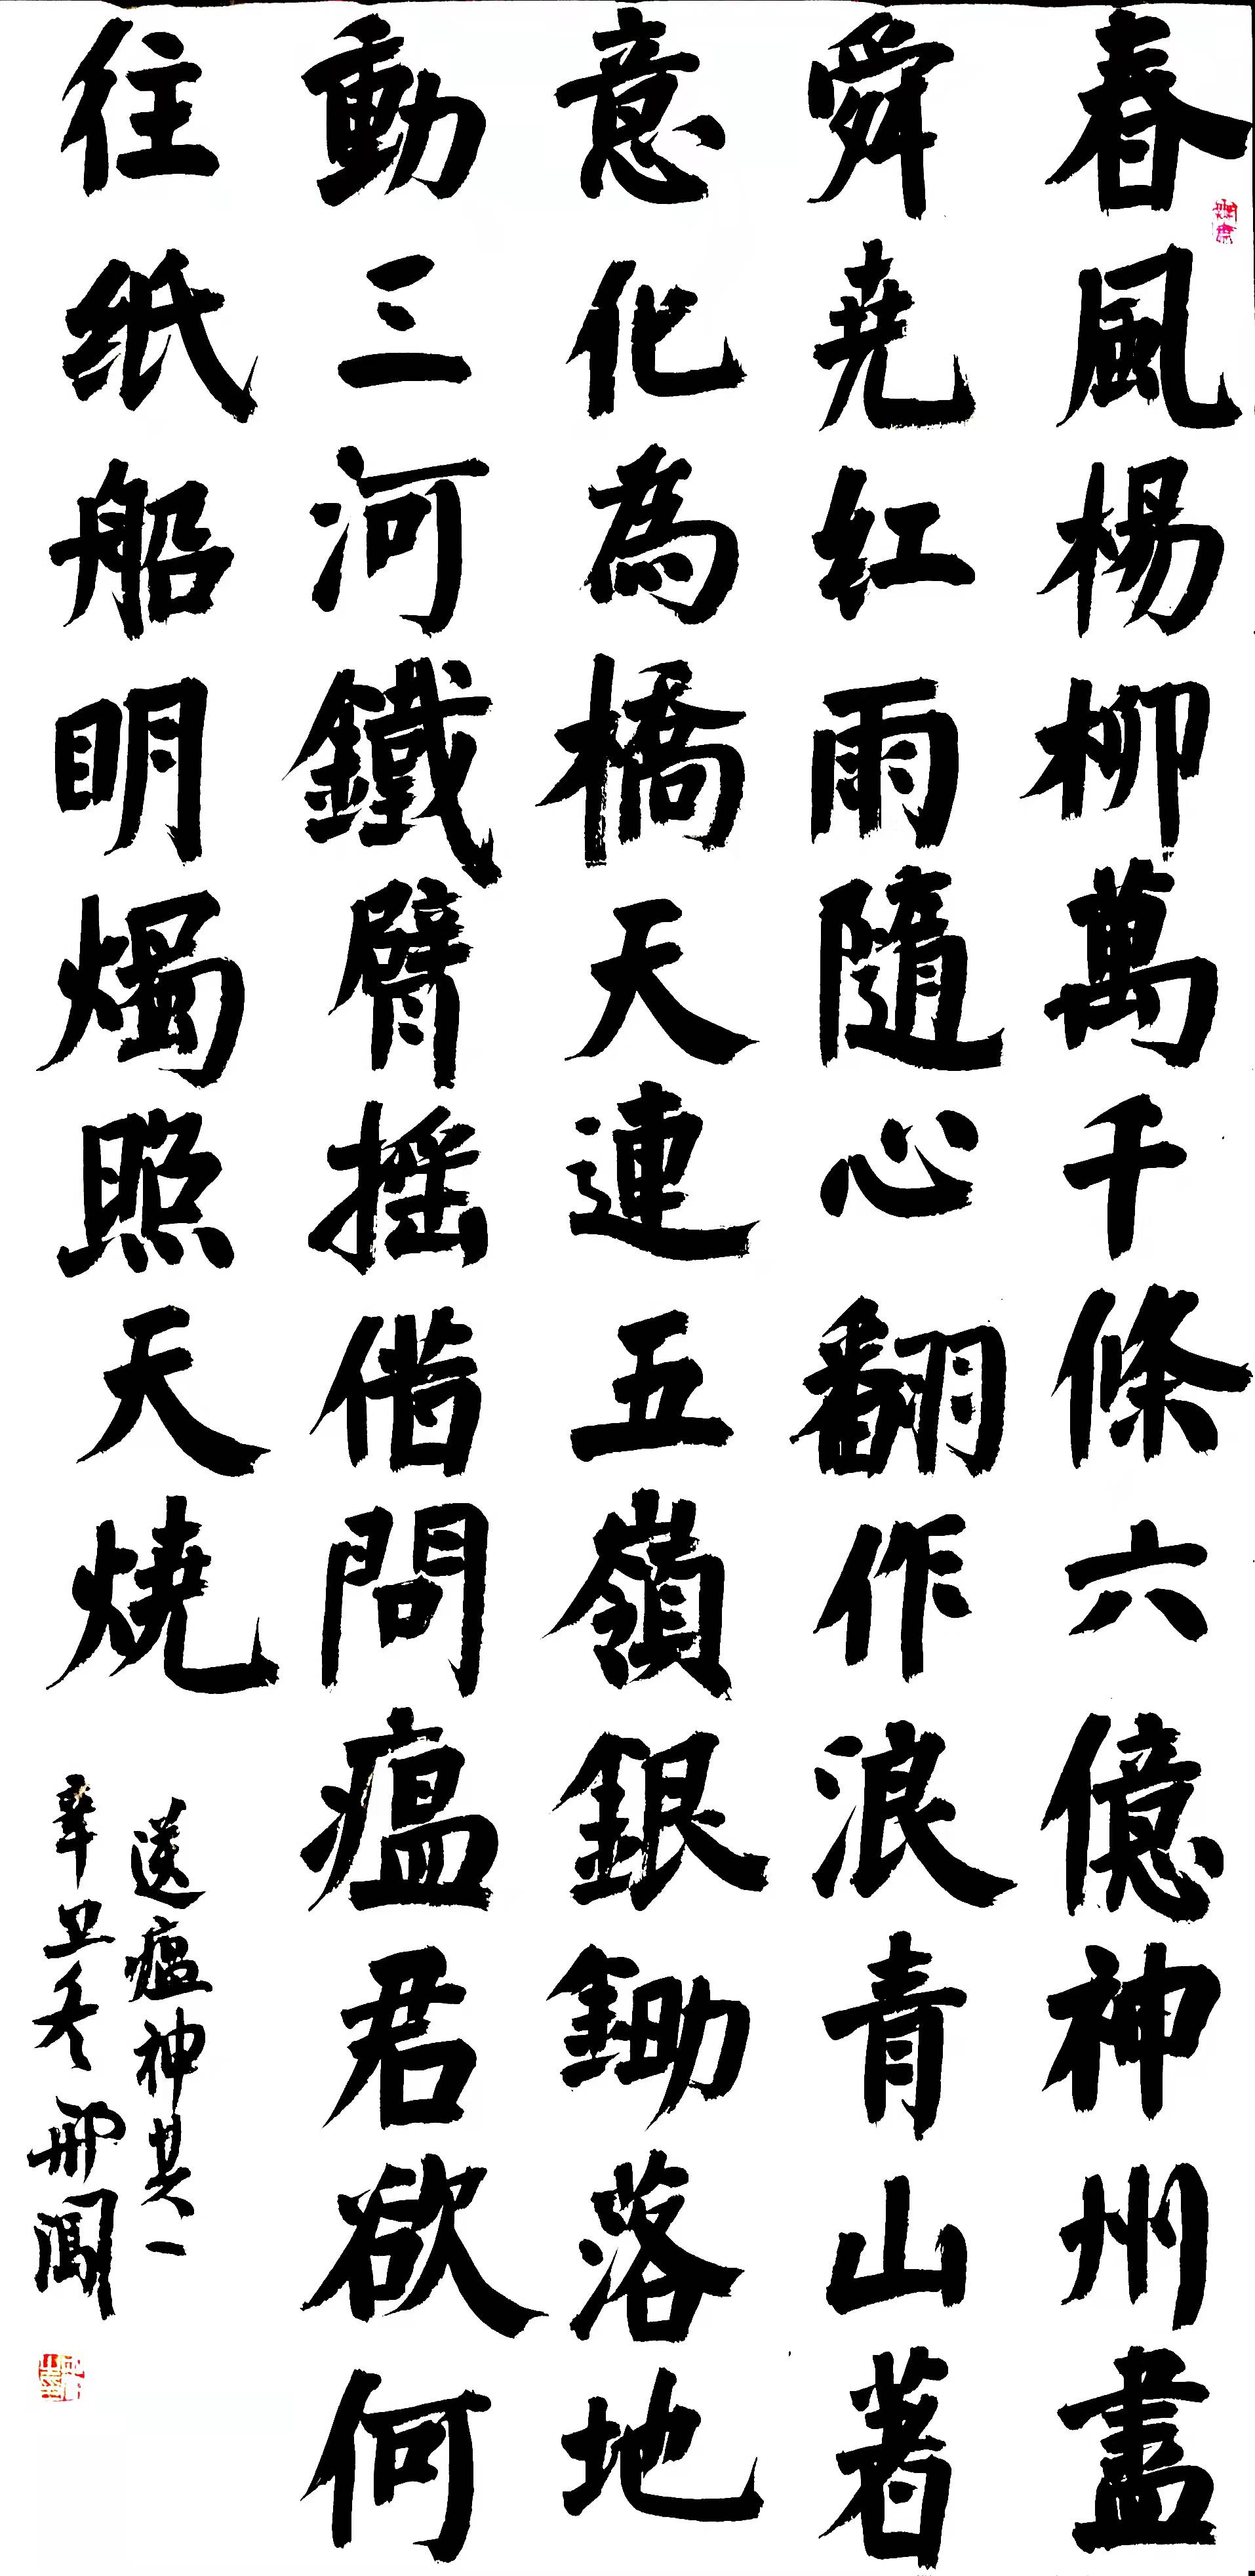 春風楊柳萬千條六億神州盡
舜堯红雨隨心翻作浪青山著
意化為橋天連五嶺銀鋤落地
動三河鐵臂摇借問瘟君欲何
往纸船明燭照天燒
送瘟神其一
辛丑冬邢闖